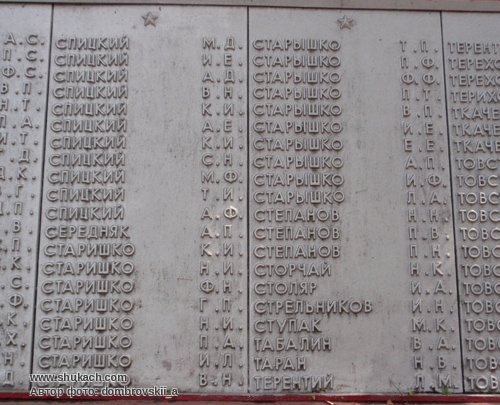 А.С.
П.С.
СПИЦКИЙ М.Д.
СПИЦКИЙ И.Е.
СПИЦКИЙ А.Д.
СПИЦКИЙ В.Н.
СПИЦКИЙ К.И.
СПИЦКИЙ А.Е.
СПИЦКИЙ К.И.
СПИЦКИЙ С.Н.
СПИЦКИЙ М.Ф.
СПИЦКИЙ Т.И.
СПИЦКИЙ А.Ф.
СЕРЕДНЯК А.П.
СТАРИШКО К.И.
СТАРИШКО Н.И.
СТАРИШКО Ф.Н.
СТАРИШКО Г.П.
СТАРИШКО Н.И.
СТАРИШКО П.А.
СТАРИШКО И.П.
СТАРИШКО В.Н.
СТАРЫШКО Т.П.
СТАРЫШКО П.Ф.
СТАРЫШКО Ф.Ф.
СТАРЫШКО П.Т.
СТАРЫШКО В.П.
СТАРЫШКО И.Е.
СТАРЫШКО Е.Е.
СТАРЫШКО А.П.
СТАРЫШКО И.Ф.
СТАРЫШКО П.А.
СТЕПАНОВ Н.Н.
СТЕПАНОВ П.В.
СТЕПАНОВ П.Н.
СТОРЧАЙ Н.К.
СТОЛЯР И.А.
СТРЕЛЬНИКОВ И.Н.
СТУПАК М.К.
ТАБАЛИН В.А.
ТАРАН Н.В.
ТЕРЕНТИЙ
ТЕРЕН
ТЕРЕХО
ТЕРЕХ
ТЕРИХО
ТКАЧЕ
ТКАЧЕ
ТКАЧЕ
ТОВС
ТОВС
ТОВС
ТОВС
ТОВС
ТОВС
ТОВС
ТОВС
ТОВС
ТОВС
ТОВС
ТОВС
ТОВС
www.shukach.com
Автор фото: dombrovskii_a